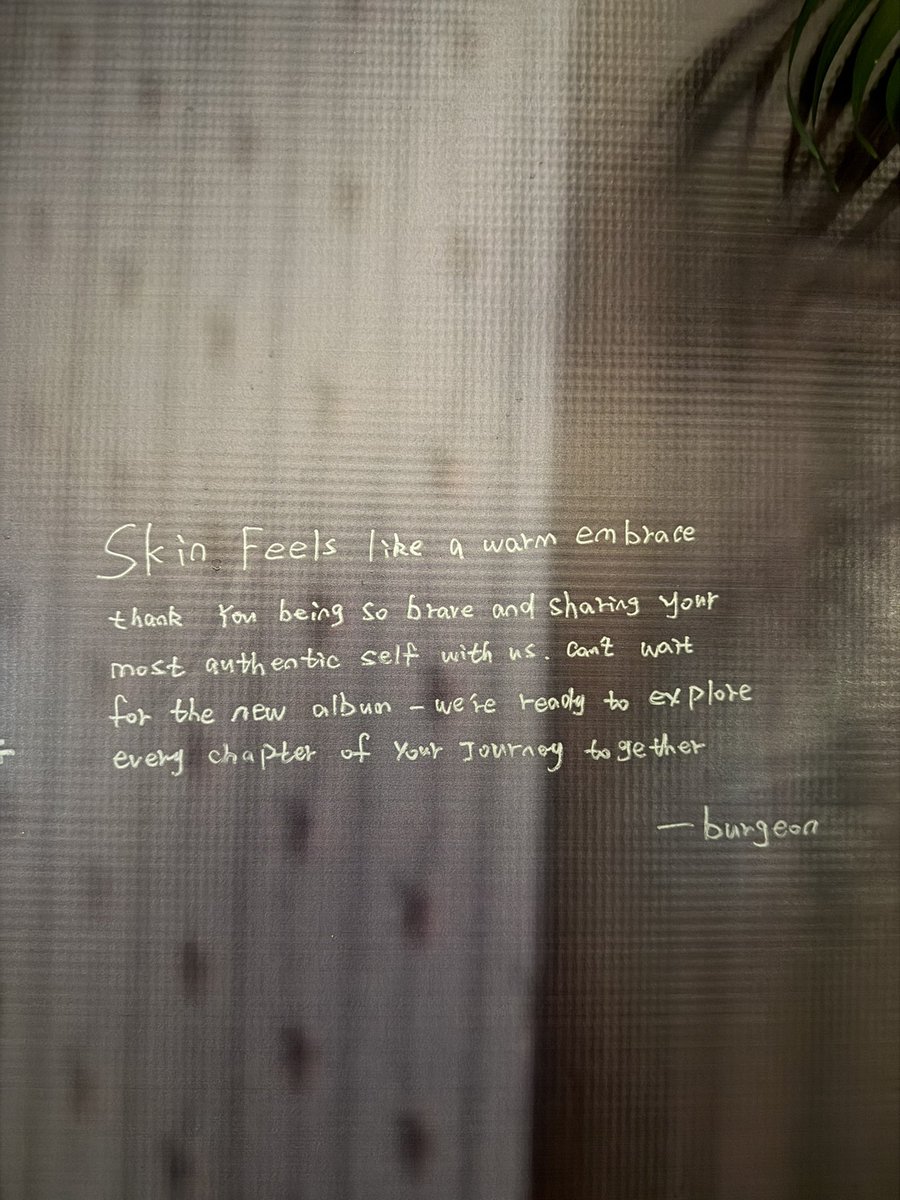 Skin. Feels like a warm embrace
thank You being so brave and sharing your
most authentic self with us. Can't wait
for the new album – we're ready to explore
every chapter of Your Journey together
— burgeon